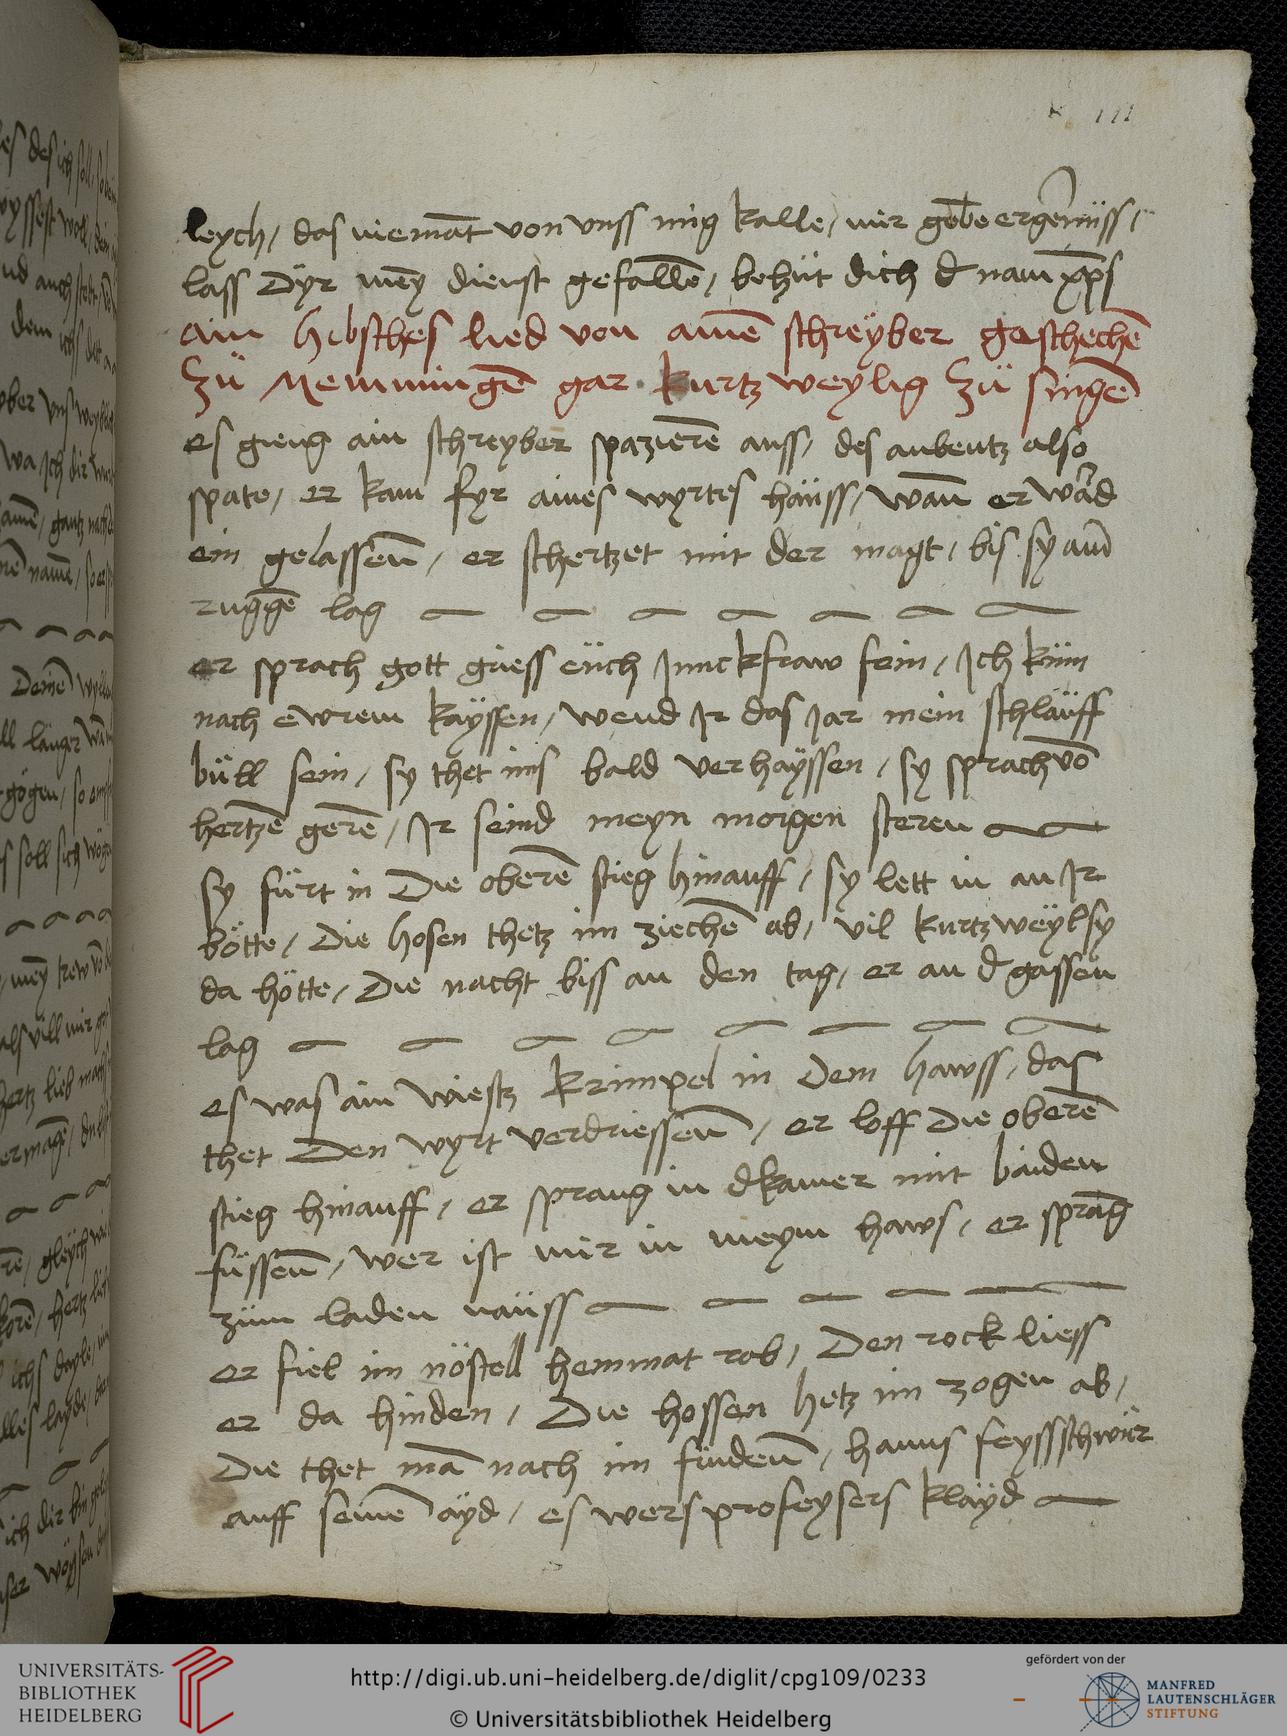 leych / das niemāt von vnss mig kalle / mir gebe ergernüss /
lass dÿr mey dienst gefallē / behüt dich d nam xp̄s
ain hibsches lied von ainē schreÿber geschechē
zü Memmingē gar kurtzweylig zü singē
es gieng ain schreyber spazierē auss / des aubentz also
spate / er kam fyr aines wyrtes haüss / wan̄ er ward
ein gelassen̄ / er schertzet mit der magt / bis sy am̄
ruggē lag
er sprach gott griess eüch Junckfraw fein / Ich küm
nach ewrem haÿssen / wend Ir das Jar mein schlauff
büll sein / sy thet ims bald verhaÿssen / sy sprach vō
hertzē gerē / Ir seind meyn morgen steren
sy fürt in die oberē stieg hinauff / sy lett in an Ir
bötte / die hosen thetz im ziechē ab / vil kurtzweÿl sy
da hötte / die nacht biss an den tag / er an d gassen
lag
es was ain wiestz krimpel in dem hawss / das
thet den wyrt verdriessen̄ / er loff die oberē
stieg hinauff / er sprang in d kamer mit baiden
füssen̄ / wer ist mir in meym haws / er sprāg
züm laden nauss
er fiel im nöstell hemmat rab / den rock liess
er da hinden / die hossen hetz im zogen ab /
die thet mā nach im finden̄ / hanns feyssschwür
auff seinē ayd / es wers profeysers klayd
UNIVERSITÄTS-
BIBLIOTHEK
HEIDELBERG
http://digi.ub.uni-heidelberg.de/diglit/cpg109/0233
© Universitätsbibliothek Heidelberg
gefördert von der
MANFRED
LAUTENSCHLÄGER
STIFTUNG